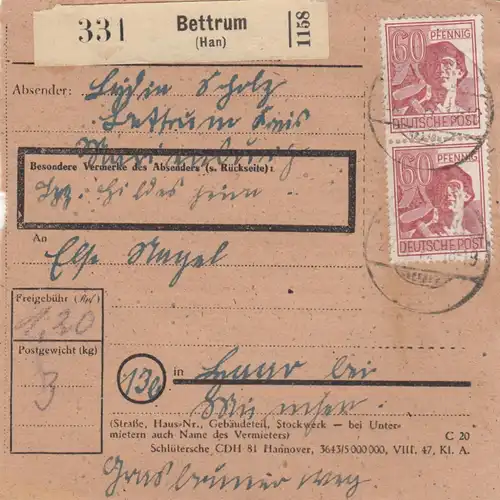 331 Bettrum (Han) 1158
60 PFENNIG
DEUTSCHE POST
60 PFENNIG
DEUTSCHE POST
Absender: Scholz
Bettrum Kreis
Marienburg
Besondere Vermerke des Absenders (s. Rückseite):
Hildesheim
An
Else Nagel
Freigebühr (Rpf)
1,20
Postgewicht (kg)
3
in Haar bei
München
(Straße, Haus-Nr., Gebäudeteil, Stockwerk — bei Unter-
mietern auch Name des Vermieters) C 20
Schlütersche CDH 81 Hannover, 3643/5 000 000, VIII. 47, Kl. A.
Grasbrunner weg.